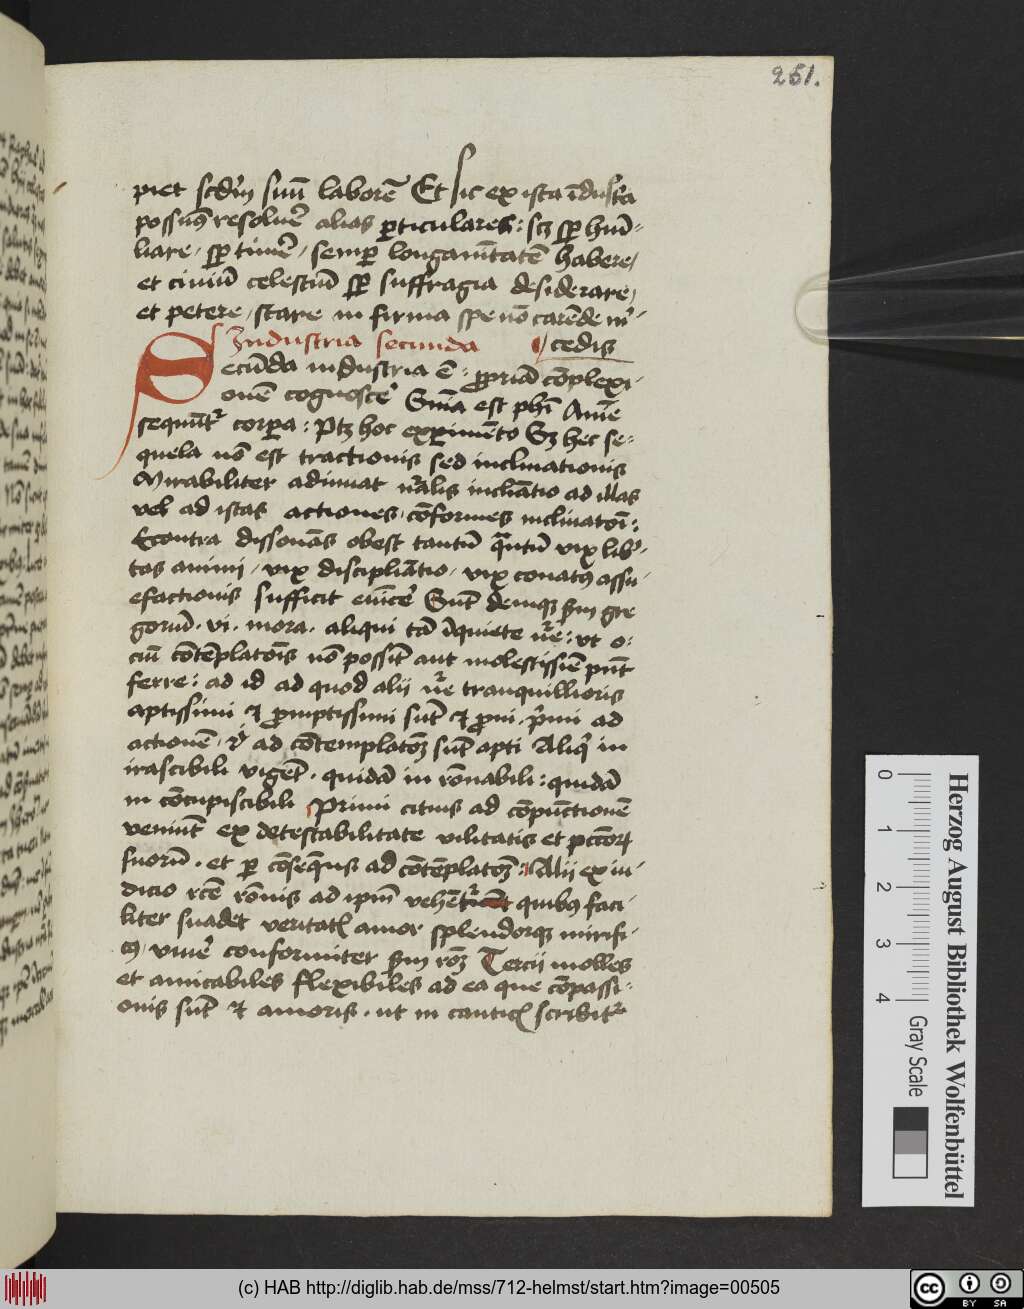 251.
piet scdm suũ laborẽ Et sic ex ista ĩdust'a
possum9 resoluer̃ alias ꝑticulares : scz sꝑ humi-
liare, sꝑ timer̃, semꝑ longanĩtatẽ habere,
et ciuiũ celestiũ sꝑ suffragia desiderare,
et petere, stare in firma spe nõ carẽde m'-
cedis
Industria secunda
Secũda industria ẽ : ꝓpriã cõplexi-
onẽ cognoscer̃ Sñia est phi Anĩe
sequũt᷑ corpora : Ptz hoc experimẽto Sz hec se-
quela nõ est tractionis sed inclinationis
Mirabiliter adiuuat nr̃alis inclinãtio ad illas
vel ad istas actiones, cõformes inclinatoĩ :
Econtra dissonãs obest tantũ qᷓntũ vix lib'-
tas animi, vix disciplinãtio, vix conat9 assu-
efactionis sufficit euĩcer̃ Sunt deniqꝫ ẜm gre
gorũ . vi . mora . aliqui tã ĩquiete nr̃e : vt o-
ciũ cõtẽplatõis nõ possint aut molestissiẽ pn̄t
ferre : ad id ad quod alij nr̃e tranquillioris
aptissimi et ꝓmptissimi sũt et ꝓni . p'mi ad
actionẽ, ij ad cõtemplatõꝫ sũt apti Aliq' in
irascibili vigẽt . quidã in rõnabili : quidã
in cõcupiscibili Primi citius ad cõpũctionẽ
veniũt ex detestabilitate vilitatis et pcc̃oꝝ
suorũ . et ꝑ cõseqᷓns ad cõtẽplatõꝫ : Alij ex iu-
dicio rc̃e rõnis ad ipm̃ quib9 faci-
liter suadet veritatꝭ amor splendorqꝫ mirifi-
c9, viuer̃ conformiter ẜm rõꝫ Tercij molles
et amicabiles flexibiles ad ea que cõpassi-
onis sũt et amoris . ut in canticꝭ scribit᷑
Herzog August Bibliothek Wolfenbüttel
0 1 2 3 4 Gray Scale
(c) HAB http://diglib.hab.de/mss/712-helmst/start.htm?image=00505
cc BY SA